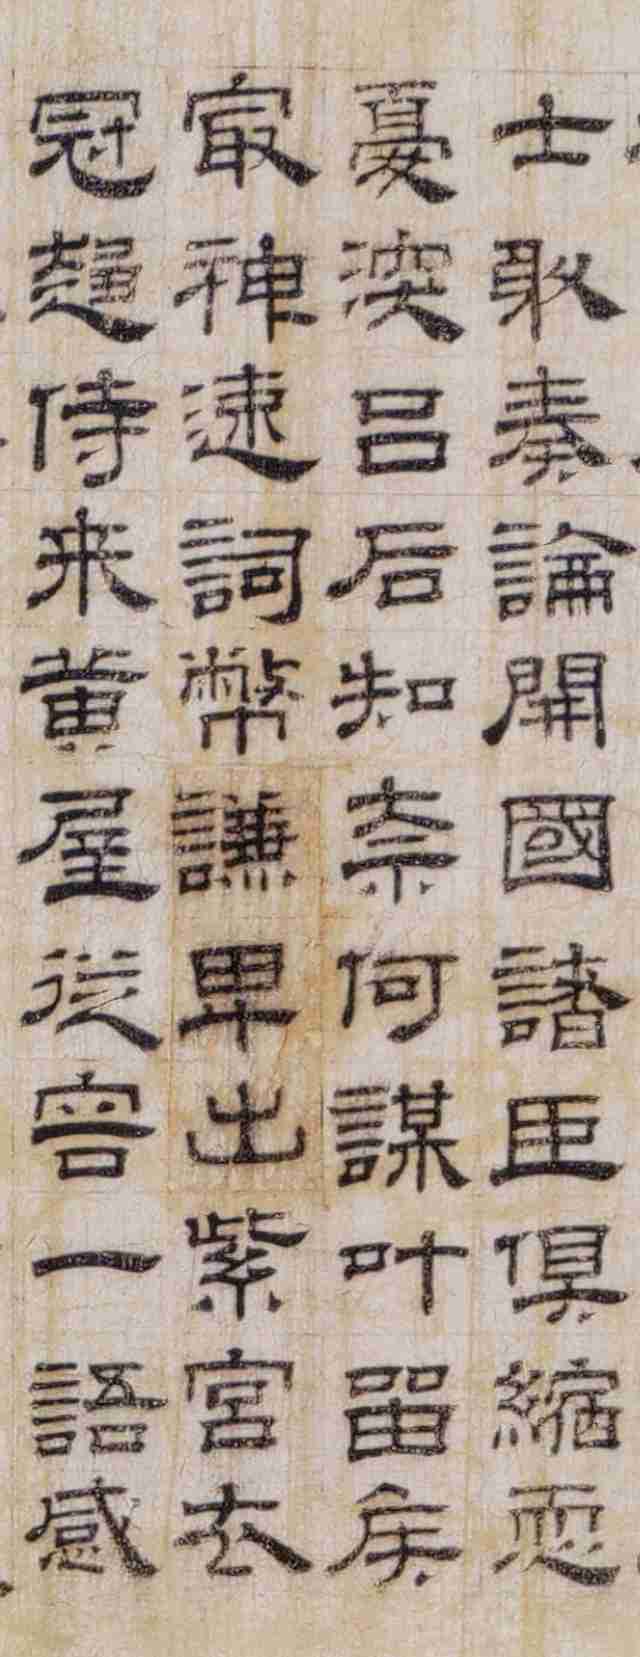 士敢奏論開國諸臣俱縮恧
憂深呂后知柰何謀叶留矦
㝡神速詞幣謙卑出紫宮去
冠趨侍来黃屋從容一語感